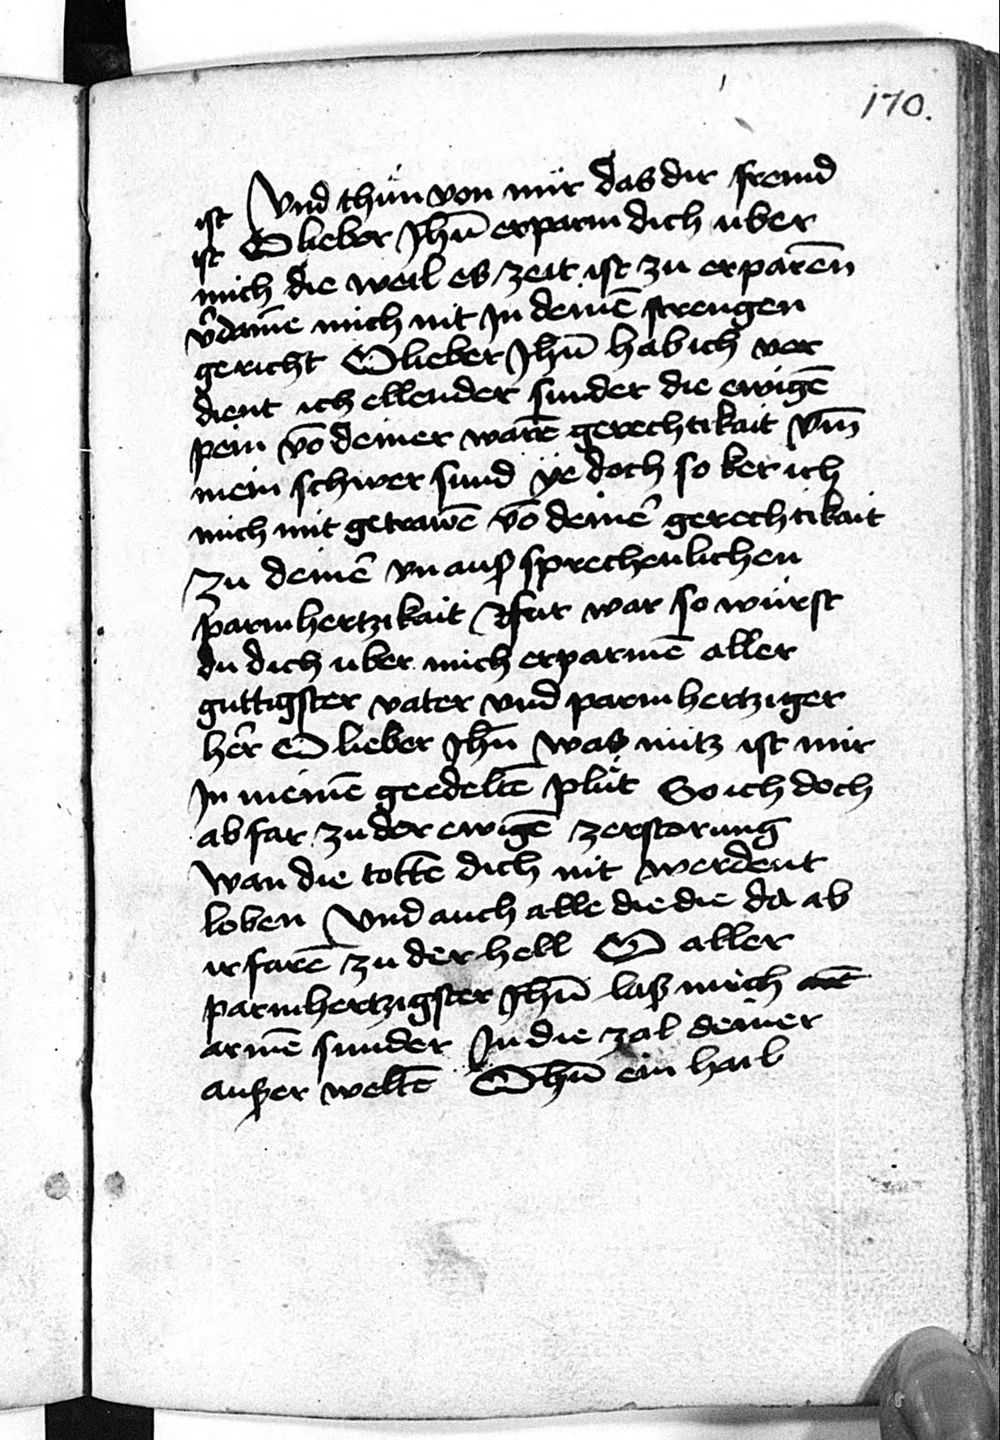 170.
ist Vnd thün von mir das dir fremd
ist O lieber Jhū erparm dich uber
mich die weil es zeit ist zu erparēn
v̄damē mich nit Jn deinē strengen
gericht O lieber Jhū hab ich vor
dient ich ellender sunder die ewigē
pein vō deiner warē gerechtikait vm̄
mein schwer sund ÿe doch so ker ich
mich mit getrawē vō deinē gerechtikait
zu deinē vn auß sprechenlichen
parmhertzikait fur war so würst
du dich uber mich erparmē aller
guttigster vater vnd parmhertziger
her̄ O lieber Jhū was nütz ist mir
Jn meinē geedeltē plüt So ich doch
ab far zu der ewigē zerstorung
Wan die tottē dich nit werdent
loben Vnd auch alle die die da ab
ir farē zu der hell O aller
parmhertzigster Jhū laß mich
armē sunder Jn die zal deiner
außer weltē O Jhū ein hail